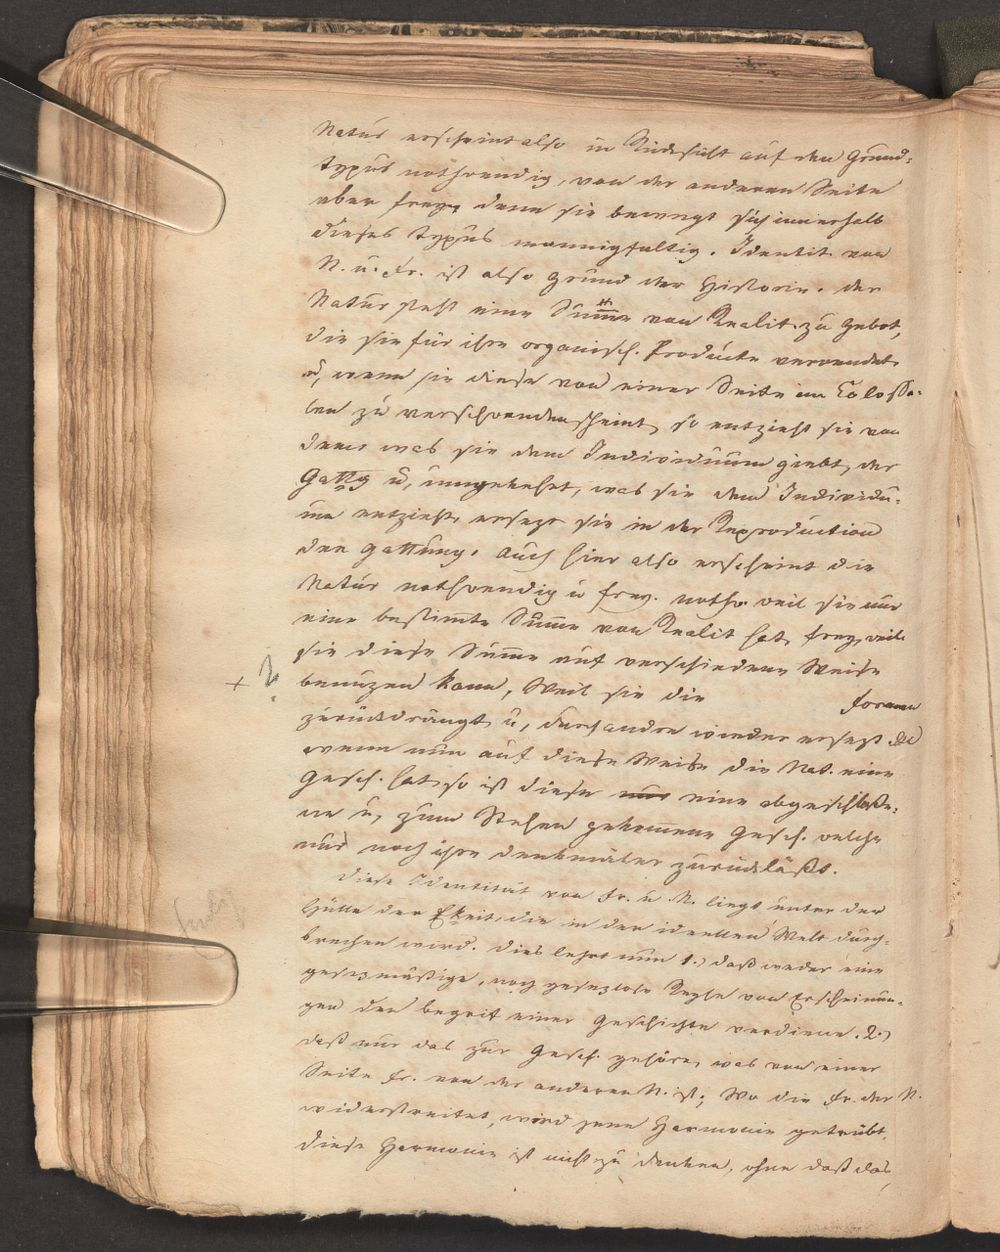 Natur erscheint also in Rücksicht auf den Grund-
typus nothwendig, von der anderen Seite
aber frey, denn sie bewegt sich innerhalb
dieses Typus mannigfaltig. Identit. von
N. u. Fr. ist also Grund der Historie. Der
Natur steht eine Summe von Realit. zu Gebot,
die sie für ihre organisch. Producte verwendet
u, wenn sie diese von einer Seite im Colossa-
len zu verschwenden scheint, so entzieht sie von
dem was sie dem Individuum giebt, der
Gattg u, umgekehrt, was sie dem Individu-
um entzieht, ersezt sie in der Reproduction
der Gattung. Auch hier also erscheint die
Natur nothwendig u frey. nothw weil sie nur
eine bestimte Summe von Realit hat, frey, weil
sie diese Summe auf verschiedene Weise
+ ? benuzen kann, Weil sie die Formen
zurückdrängt u, durch andre wieder ersezt
wenn nun auf diese Weise die Nat. eine
Gesch. hat, so ist diese nur eine abgeschloße-
ne u, zum Stehen gekommene Gesch. welche
nur noch ihre Denkmäler zurückläßt.
Diese Identität von Fr. u. N. liegt unter der
Hülle der Ekeit, die in der ideellen Welt durch-
brechen wird. Dies lehrt nun 1.) daß weder eine
gesezmäßige, noch gesezlose Reyhe von Erscheinun-
gen den Begrif einer Geschichte verdiene. 2.)
daß nur das zur Gesch. gehöre, was von einer
Seite Fr. von der anderen N. ist; Wo die Fr. der N.
widerstreitet, wird jene Harmonie getrübt.
Diese Harmonie ist nicht zu denken, ohne daß das